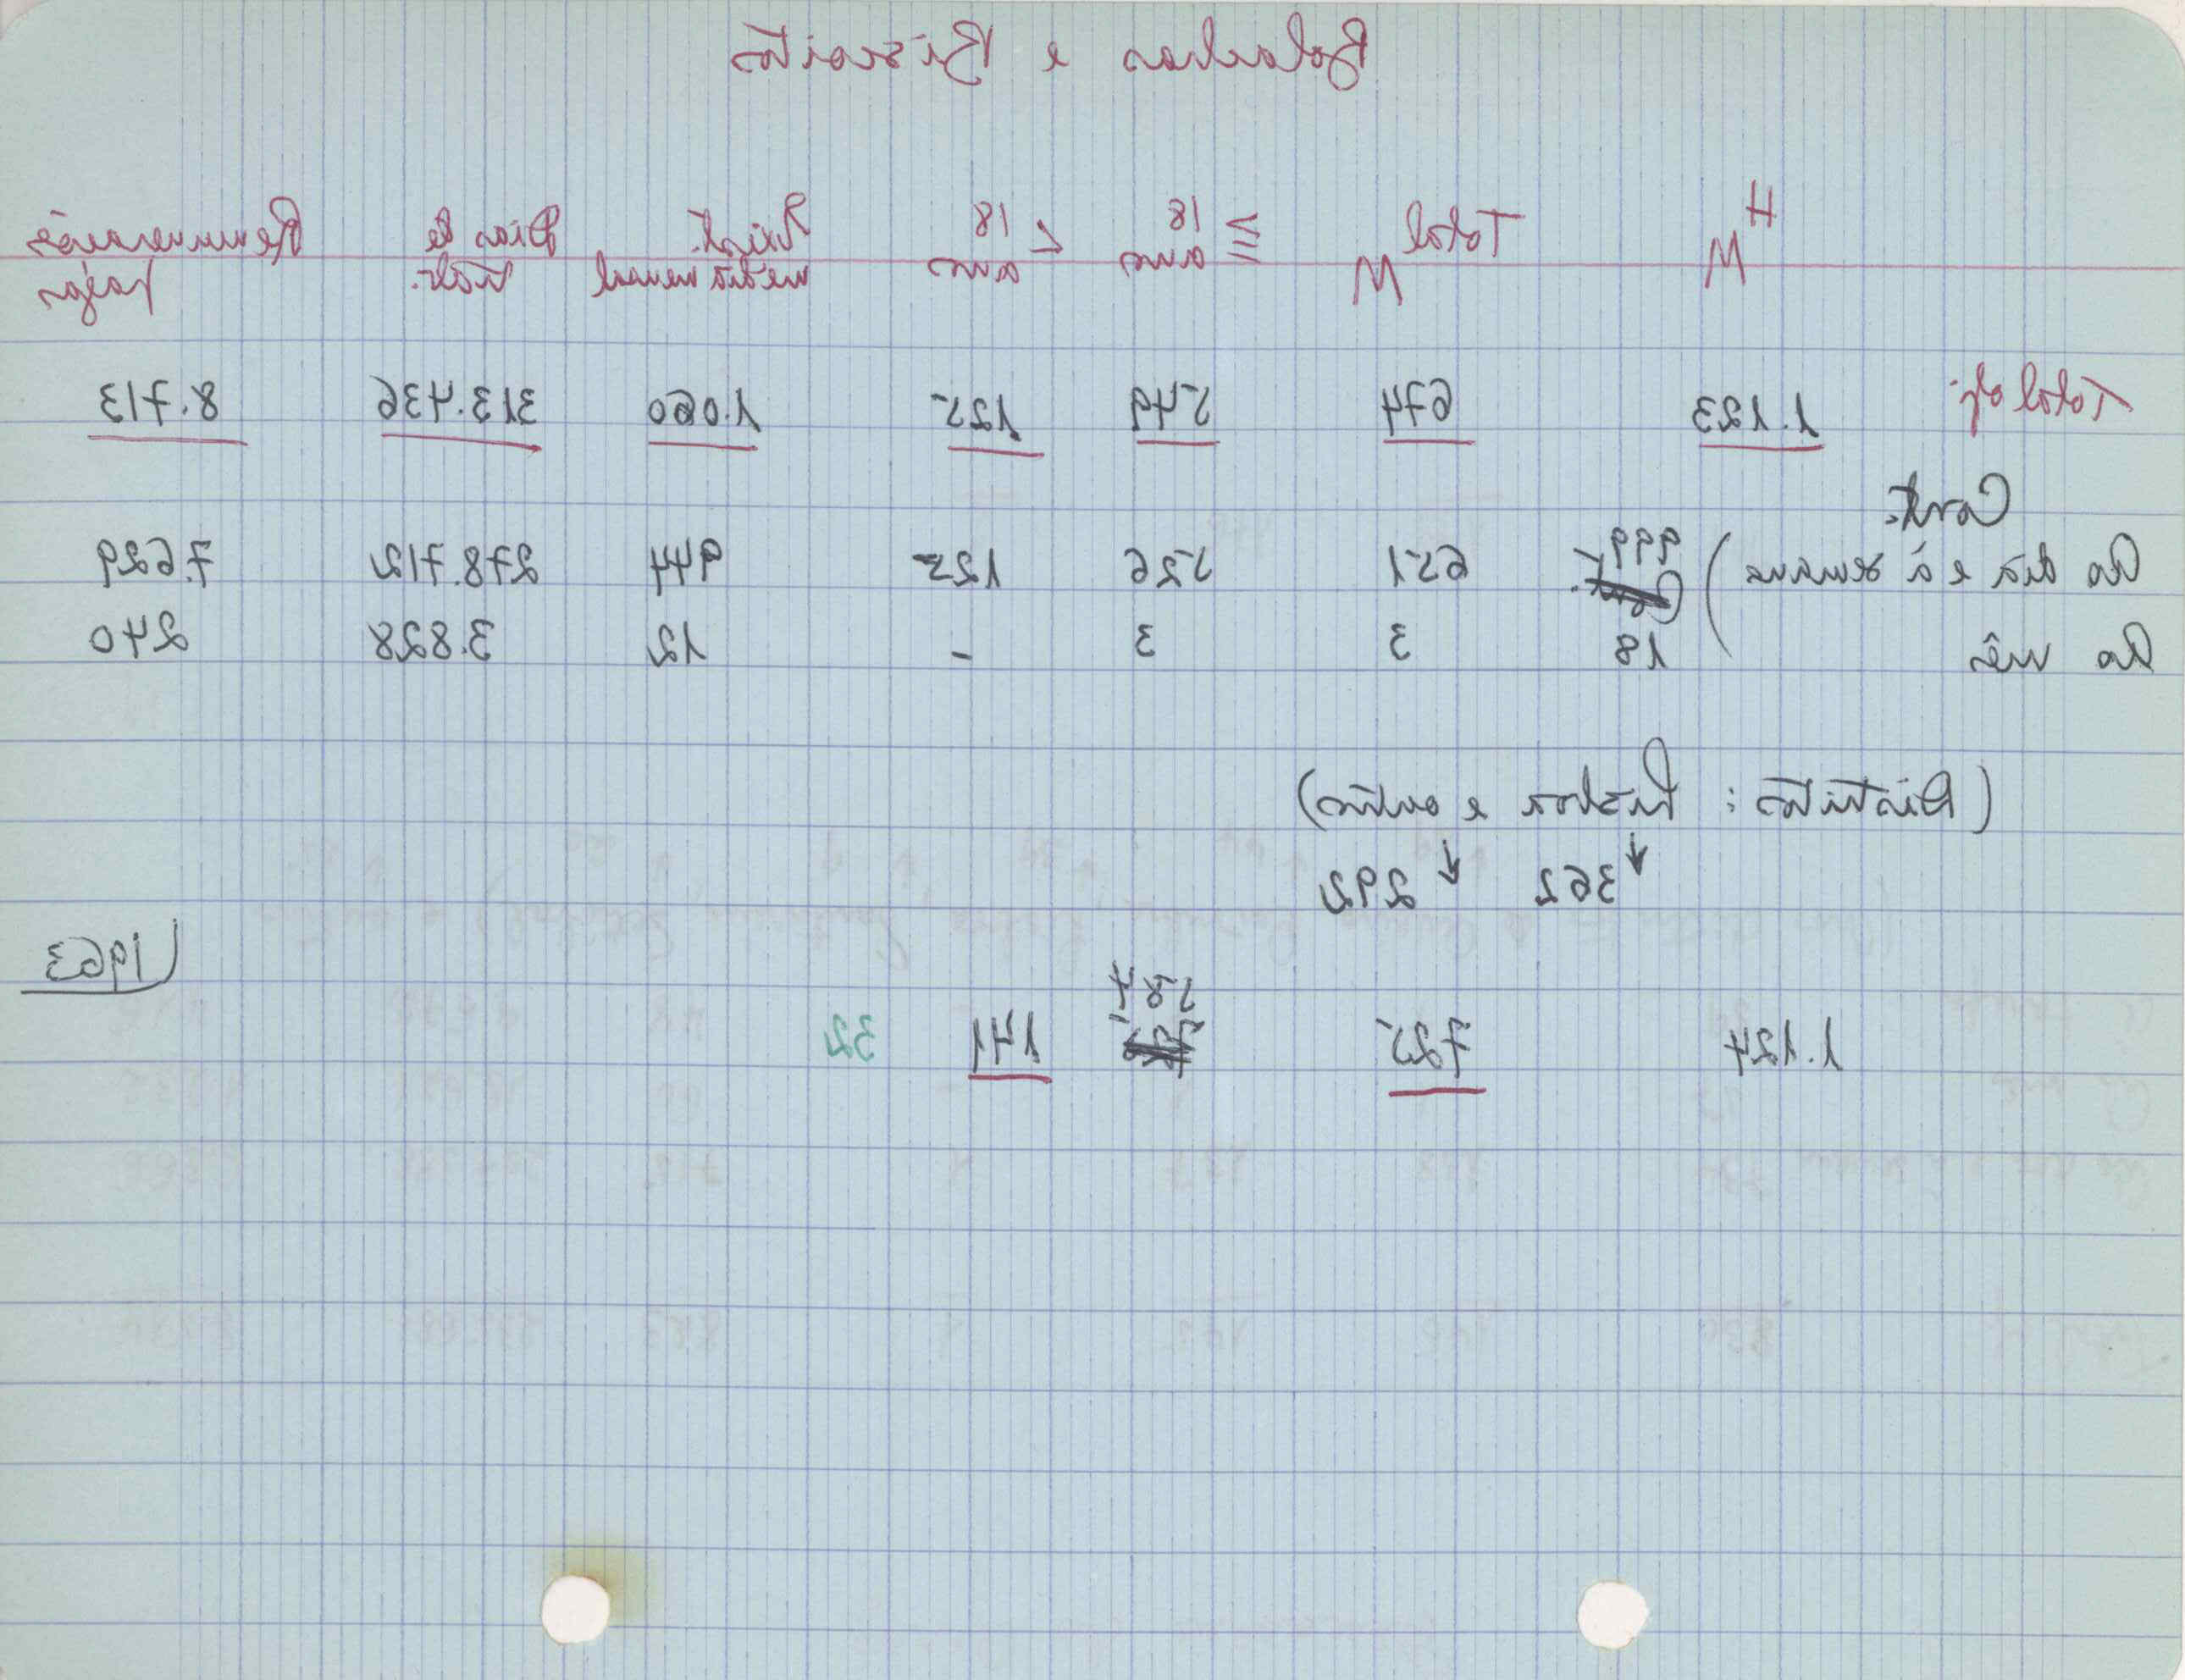 Bolachas e Biscoitos
HM Total M ≧ 18 anos < 18 anos Exist. média mensal Dias de trab. Remunerações pagas
Total gl. 1.123 674 549 125 1.060 313.436 8.713
Cont.
Ao dia e à semana) 999 651 526 125 944 278.712 7.629
Ao mês 18 3 3 - 12 3.828 240
(Distritos: Lisboa e outros)
↓ 362 ↓ 292
1963
1.124 725 584 141 32